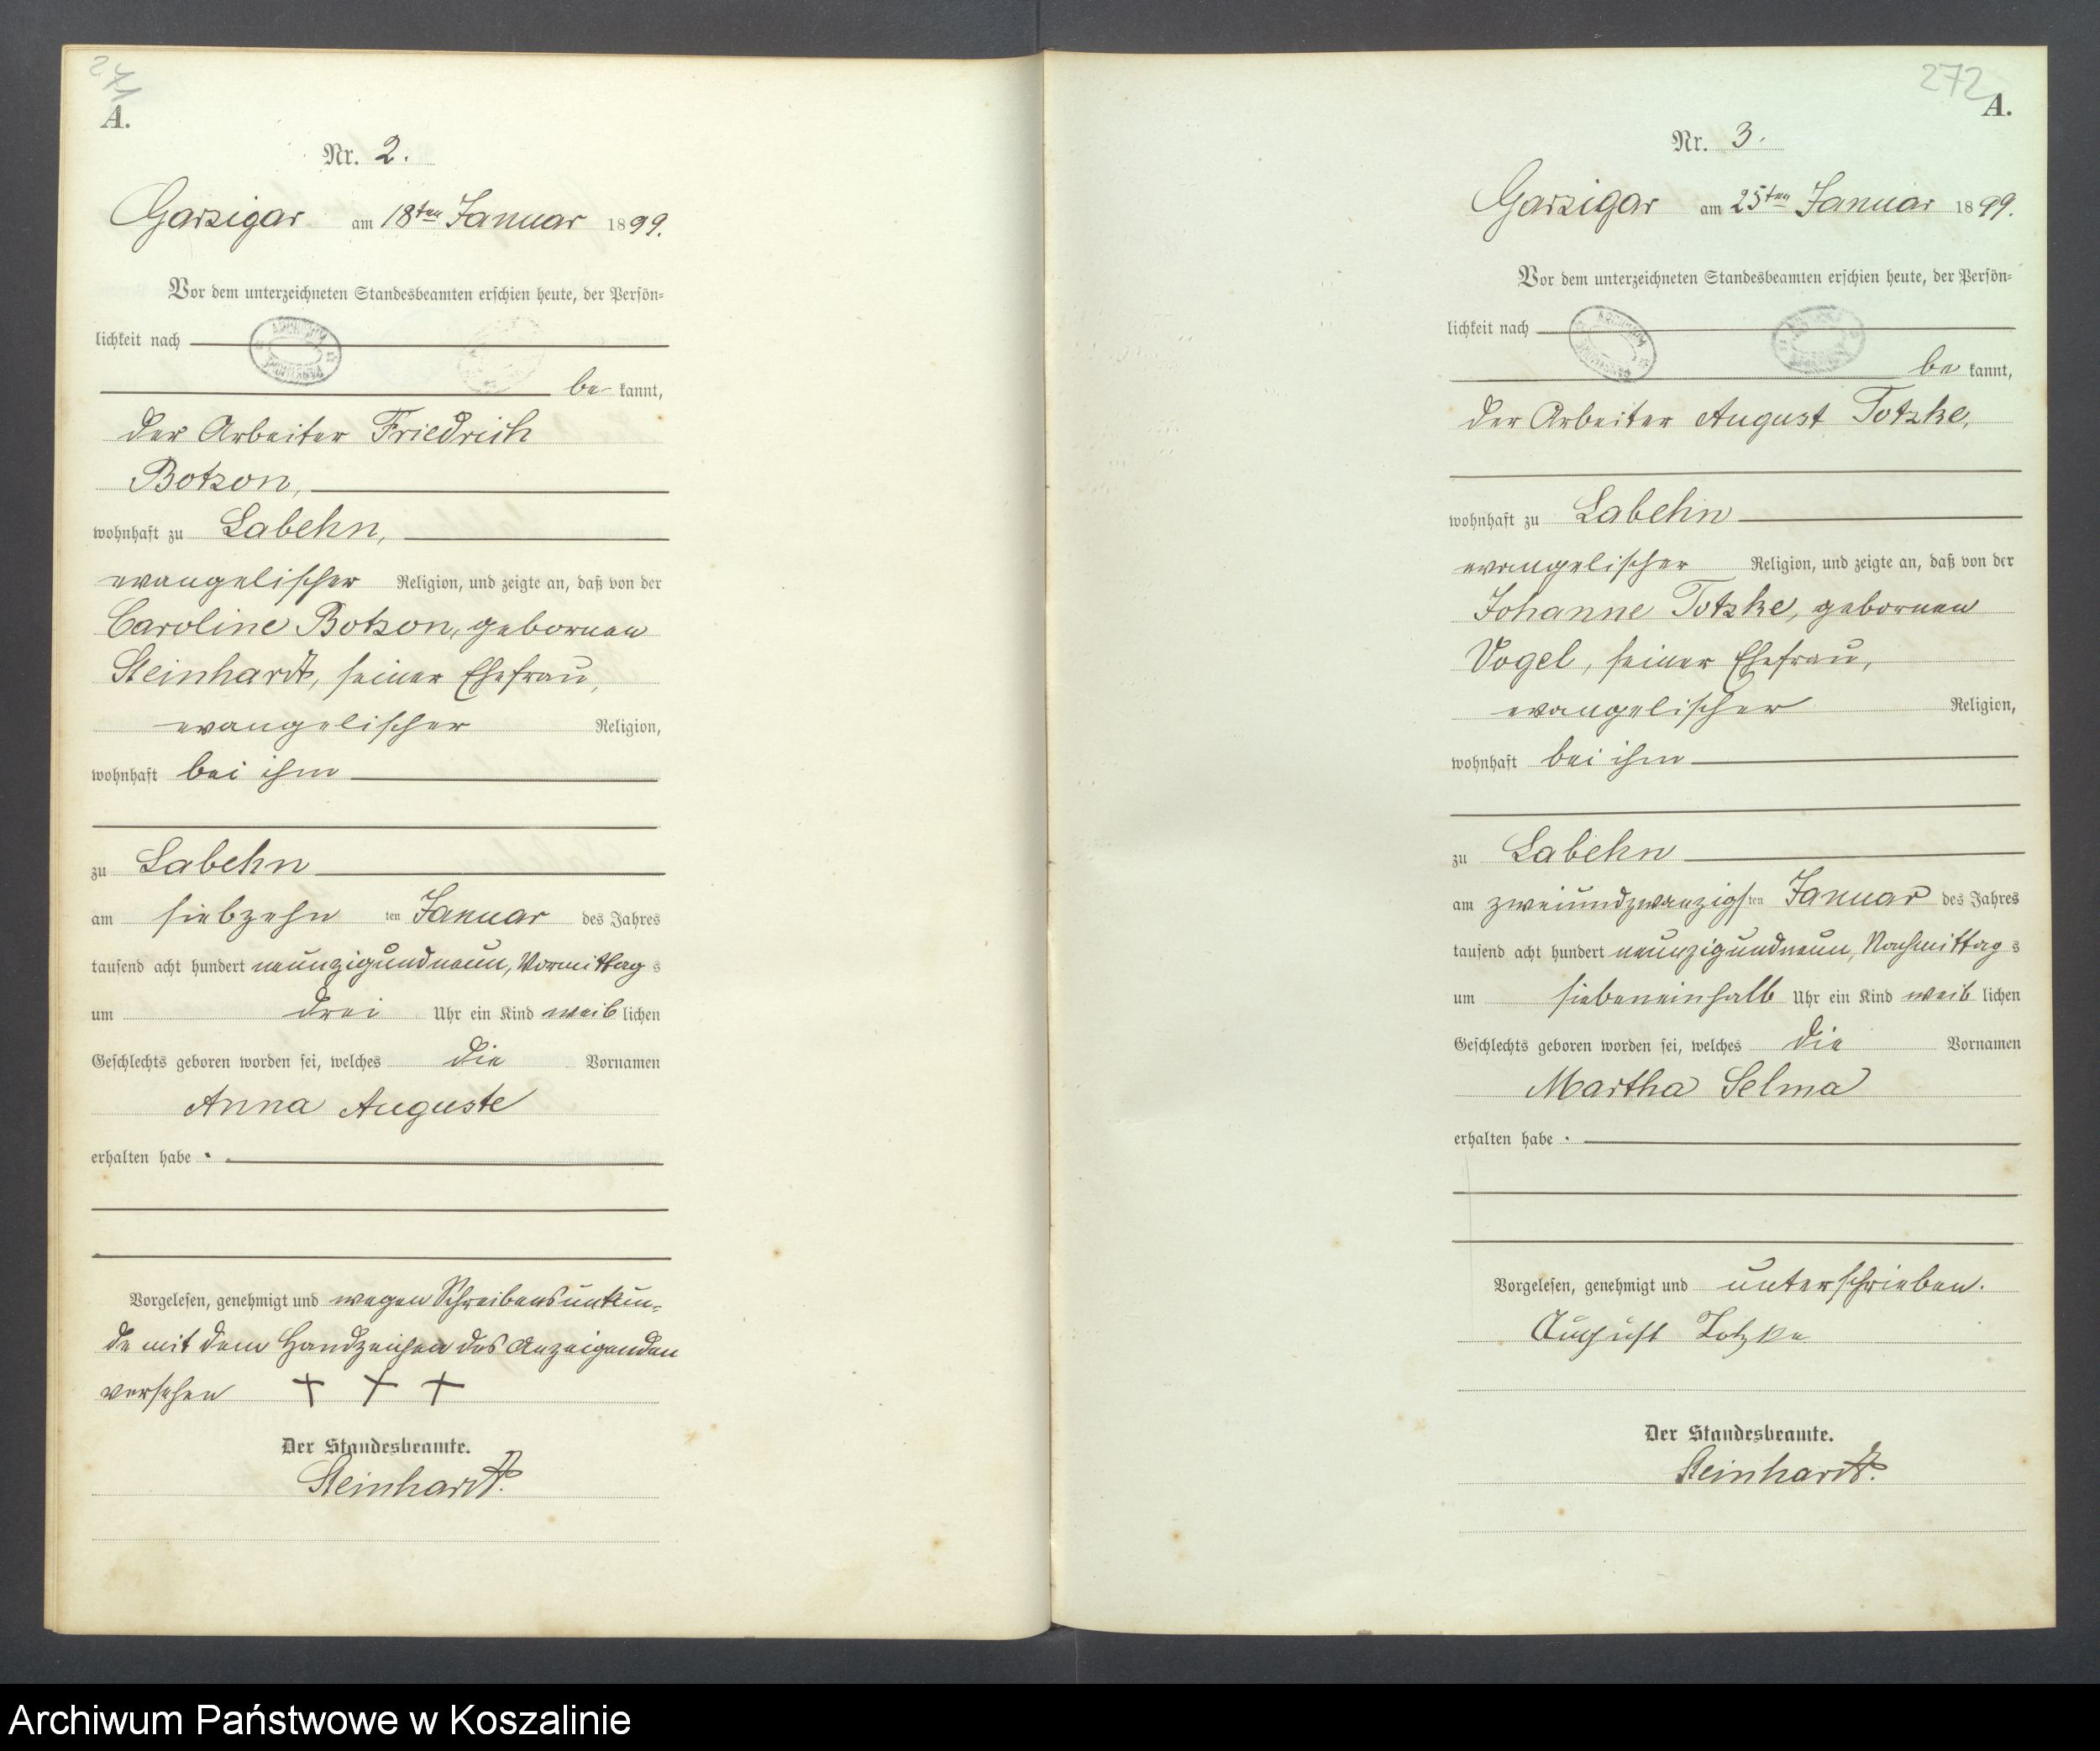 271
A.
Nr. 2.
Garzigar am 18ten Januar 1899.
Vor dem unterzeichneten Standesbeamten erschien heute, der Persön-
lichkeit nach
be kannt,
der Arbeiter Friedrich
Botzon,
wohnhaft zu Labehn,
evangelischer Religion, und zeigte an, daß von der
Caroline Botzon, gebornen
Steinhardt, seiner Ehefrau,
evangelischer Religion,
wohnhaft bei ihm
zu Labehn
am siebzehn ten Januar des Jahres
tausend acht hundert neunzigundneun, Vormittag s
um drei Uhr ein Kind weib lichen
Geschlechts geboren worden sei, welches die Vornamen
Anna Auguste
erhalten habe.
Vorgelesen, genehmigt und wegen Schreibensunkun-
de mit dem Handzeichen des Anzeigenden
versehen + + +
Der Standesbeamte.
Steinhardt.
272
A.
Nr. 3.
Garzigar am 25ten Januar 1899.
Vor dem unterzeichneten Standesbeamten erschien heute, der Persön-
lichkeit nach
be kannt,
der Arbeiter August Totzke,
wohnhaft zu Labehn
evangelischer Religion, und zeigte an, daß von der
Johanne Totzke, gebornen
Vogel, seiner Ehefrau,
evangelischer Religion,
wohnhaft bei ihm
zu Labehn
am zweiundzwanzigs ten Januar des Jahres
tausend acht hundert neunzigundneun, Nachmittag s
um siebeneinhalb Uhr ein Kind weib lichen
Geschlechts geboren worden sei, welches die Vornamen
Martha Selma
erhalten habe.
Vorgelesen, genehmigt und unterschrieben.
August Totzke
Der Standesbeamte.
Steinhardt.
Archiwum Państwowe w Koszalinie